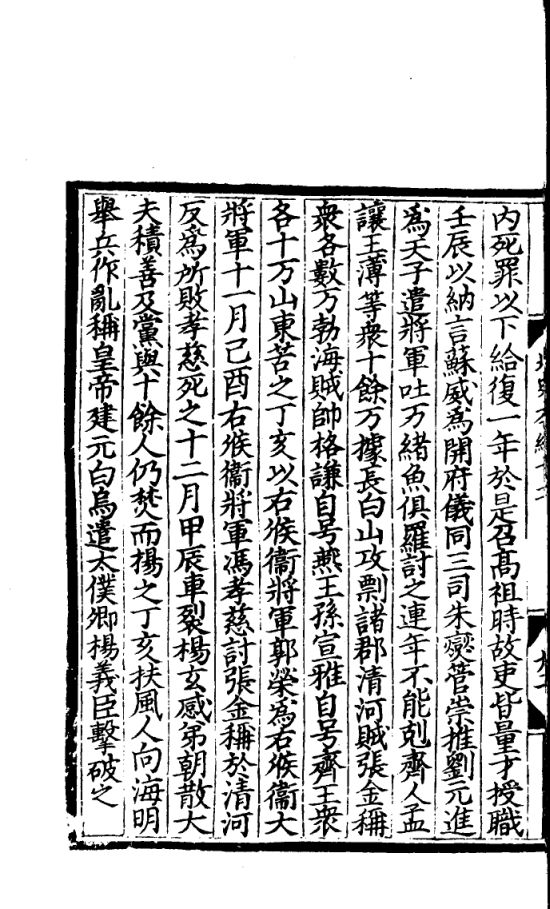 内死罪以下給復一年於是召髙祖時故吏皆量才授職
壬辰以納言蘇威爲開府儀同三司朱燮管崇推劉元進
爲天子遣將軍吐万緒魚俱羅討之連年不能剋齊人孟
讓王薄等衆十餘万據長白山攻剽諸郡清河賊張金稱
衆各數万勃海賊帥格謙自号燕王孫宣雅自号齊王衆
各十万山東苦之丁亥以右候衞將軍郭榮爲右候衞大
將軍十一月己酉右候衞將軍馮孝慈討張金稱於清河
反爲所敗孝慈死之十二月甲辰車裂楊玄感弟朝散大
夫積善及黨與十餘人仍焚而揚之丁亥扶風人向海明
舉兵作亂稱皇帝建元白烏遣太僕卿楊義臣擊破之